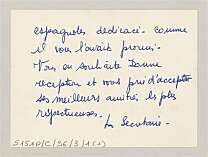 espagnoles dédicacé. comme
il vous l'avait promis.
Vous en souhaite bonne
réception et vous prie d'accepter
ses meilleurs amitiés les plus
respectueuses.
Le Secrétaire.